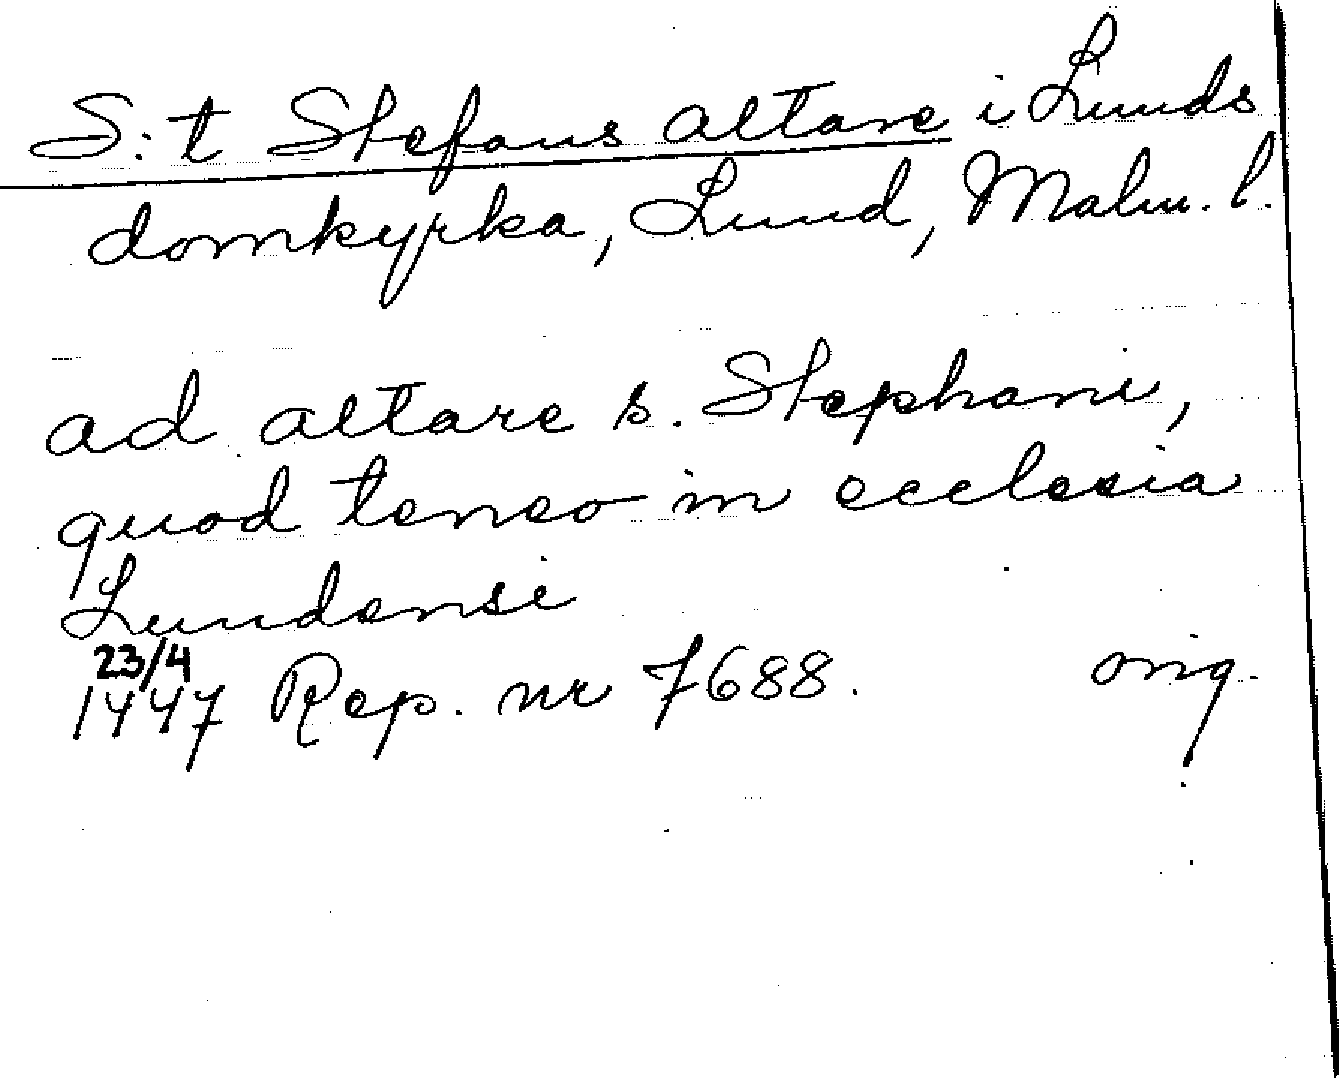 S:t Stefans altare i Lunds
domkyrka, Lund, Malm. l.
ad altare s. Stephani,
quod teneo in ecclesia
Lundensi
23/4
1447 Rep. nr 7688. orig.